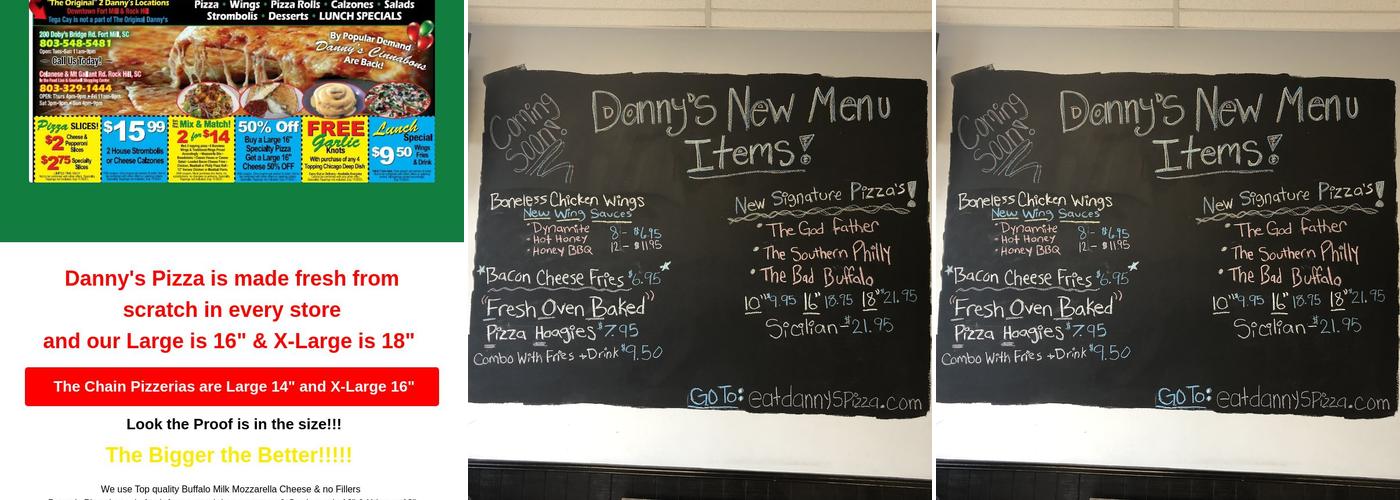 "The Original" 2 Danny's Locations
Downtown Fort Mill & Rock Hill
Tega Cay is not a part of The Original Danny's
Pizza • Wings • Pizza Rolls • Calzones • Salads
Strombolis • Desserts • LUNCH SPECIALS
200 Doby's Bridge Rd. Fort Mill, SC
803-548-5481
Open: Tues-Sun 11am-9pm
Call Us Today!
Celanese & Mt Gallant Rd. Rock Hill, SC
In the Food Lion & Goodwill Shopping Center
803-329-1444
OPEN: Thurs 4pm-9pm • Fri 11am-9pm
Sat 3pm-9pm • Sun 4pm-9pm
By Popular Demand
Danny's Cinnabons
Are Back!
Pizza SLICES!
$2 Cheese & Pepperoni Slices
$2.75 Specialty Slices
$15.99
2 House Strombolis
or Cheese Calzones
Mix & Match!
2 for $14
50% Off
Buy a Large 16"
Specialty Pizza
Get a Large 16"
Cheese 50% OFF
FREE
Garlic
Knots
With purchase of any 4
Topping Chicago Deep Dish
Lunch
Special
$9.50 Wings Fries & Drink
Danny's Pizza is made fresh from
scratch in every store
and our Large is 16" & X-Large is 18"
The Chain Pizzerias are Large 14" and X-Large 16"
Look the Proof is in the size!!!
The Bigger the Better!!!!!
We use Top quality Buffalo Milk Mozzarella Cheese & no Fillers
Coming Soon!
Danny's New Menu
Items!
Boneless Chicken Wings
New Wing Sauces
• Dynamite 8 - $6.95
• Hot Honey 12 - $11.95
• Honey BBQ
Bacon Cheese Fries $6.95
"Fresh Oven Baked"
Pizza Hoagies $7.95
Combo With Fries + Drink $9.50
New Signature Pizza's!
• The God father
• The Southern Philly
• The Bad Buffalo
10" $9.95 16" 18.95 18" $21.95
Sicilian - $21.95
Go To: eatdannysPizza.com
Coming Soon!
Danny's New Menu
Items!
Boneless Chicken Wings
New Wing Sauces
• Dynamite 8 - $6.95
• Hot Honey 12 - $11.95
• Honey BBQ
Bacon Cheese Fries $6.95
"Fresh Oven Baked"
Pizza Hoagies $7.95
Combo With Fries + Drink $9.50
New Signature Pizza's!
• The God father
• The Southern Philly
• The Bad Buffalo
10" $9.95 16" 18.95 18" $21.95
Sicilian - $21.95
Go To: eatdannysPizza.com